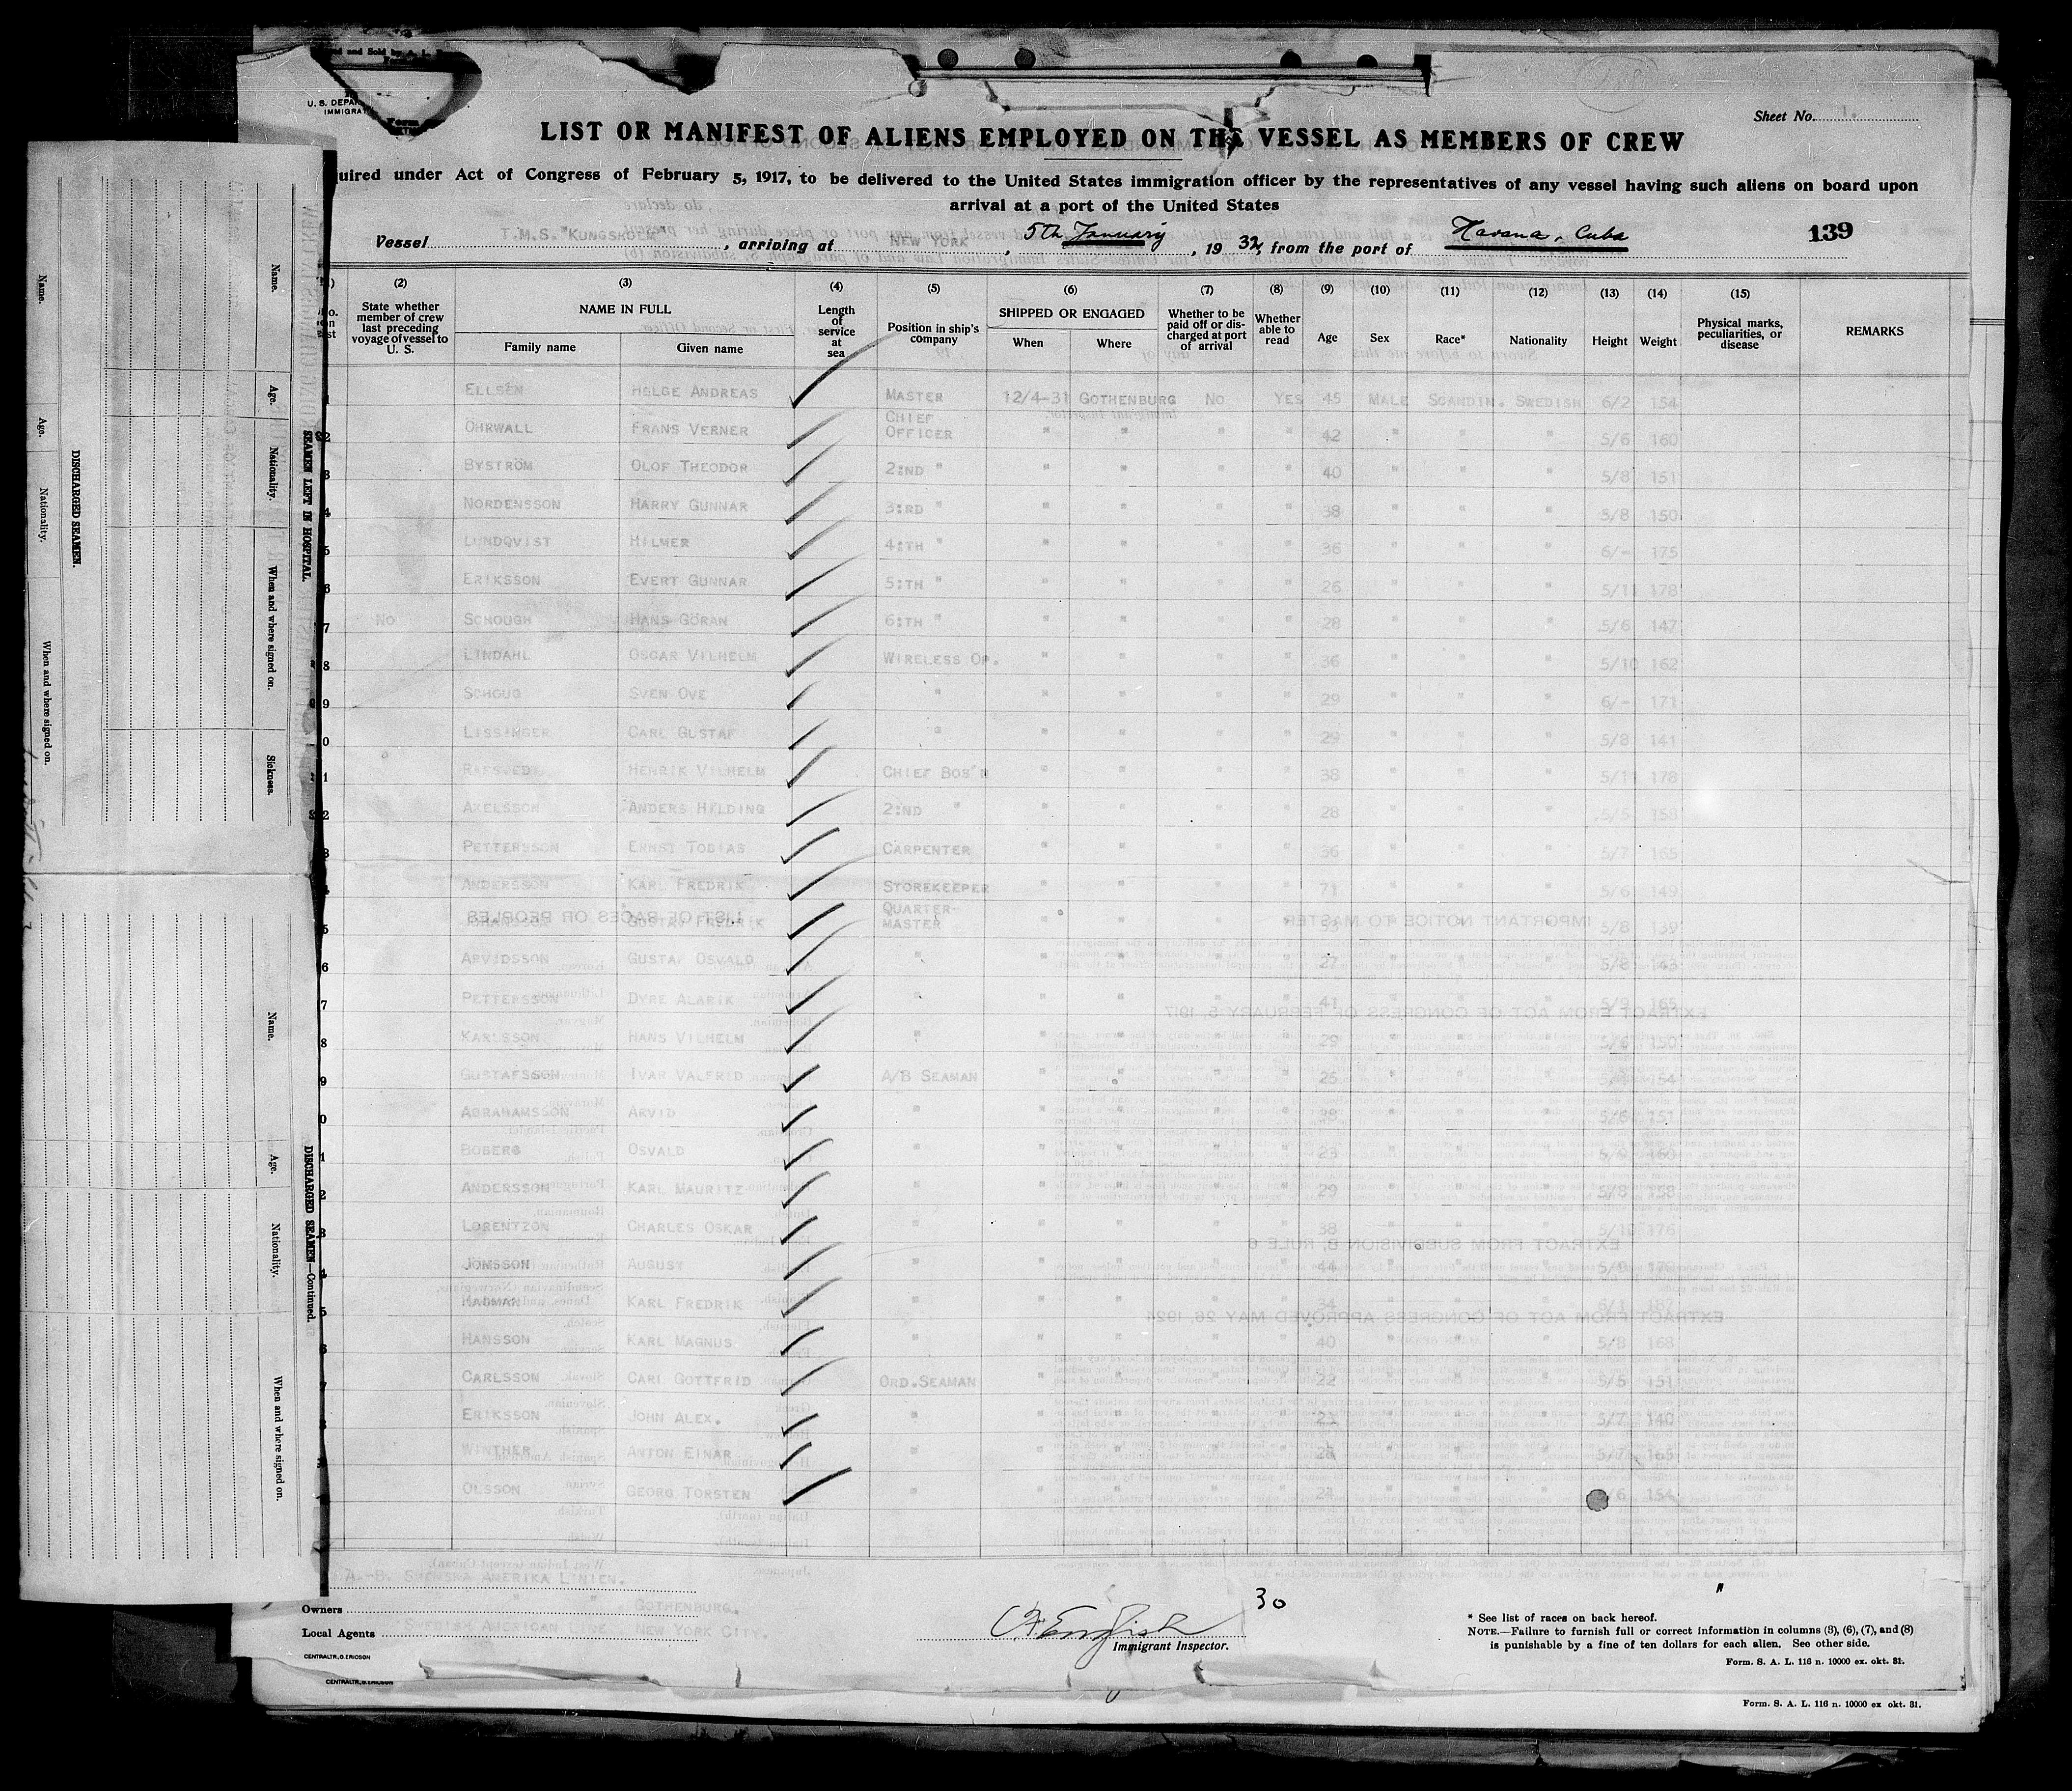 and Sold by A. L.
U. S. DEPAR
IMMIGRA
Form
Sheet No. 1.
LIST OR MANIFEST OF ALIENS EMPLOYED ON THE VESSEL AS MEMBERS OF CREW
uired under Act of Congress of February 5, 1917, to be delivered to the United States immigration officer by the representatives of any vessel having such aliens on board upon
arrival at a port of the United States
Vessel T.M.S. "KUNGSHOLM", arriving at NEW YORK, 5th January, 1932, from the port of Havana, Cuba 139
(2) (3) (4) (5) (6) (7) (8) (9) (10) (11) (12) (13) (14) (15)
State whether member of crew last preceding voyage of vessel to U. S. NAME IN FULL Family name Given name Length of service at sea Position in ship's company SHIPPED OR ENGAGED When Where Whether to be paid off or discharged at port of arrival Whether able to read Age Sex Race* Nationality Height Weight Physical marks, peculiarities, or disease REMARKS
1 ELLSÉN HELGE ANDREAS MASTER 12/4-31 GOTHENBURG NO YES 45 MALE SCANDIN. SWEDISH 6/2 154
2 ÖHRWALL FRANS VERNER CHIEF OFFICER " " " " 42 " " " 5/6 160
3 BYSTRÖM OLOF THEODOR 2:ND " " " " " 40 " " " 5/8 151
4 NORDENSSON HARRY GUNNAR 3:RD " " " " " 38 " " " 5/8 150
5 LUNDQVIST HILMER 4:TH " " " " " 36 " " " 6/- 175
6 ERIKSSON EVERT GUNNAR 5:TH " " " " " 26 " " " 5/11 178
7 NO SCHOUGH HANS GÖRAN 6:TH " " " " " 28 " " " 5/6 147
8 LINDAHL OSCAR VILHELM WIRELESS OP. " " " " 36 " " " 5/10 162
9 SCHOUG SVEN OVE " " " " " 29 " " " 6/- 171
0 LISSINGER CARL GUSTAF " " " " " 29 " " " 5/8 141
1 HENRIK VILHELM CHIEF BOS'N " " " " 38 " " " 5/11 178
2 AXELSSON ANDERS HILDING 2:ND " " " " " 28 " " " 5/5 158
3 PETTERSSON ERNST TOBIAS CARPENTER " " " " 36 " " " 5/7 165
4 ANDERSSON KARL FREDRIK STOREKEEPER " " " " 71 " " " 5/6 149
5 JOHANSSON GUSTAV FREDRIK QUARTER-MASTER " " " " 53 " " " 5/8 139
6 ARVIDSSON GUSTAF OSVALD " " " " " 27 " " " 5/8 143
7 PETTERSSON DYRE ALARIK " " " " " 41 " " " 5/9 165
8 KARLSSON HANS VILHELM " " " " " 29 " " " 5/6 150
9 GUSTAFSSON IVAR VALFRID A/B SEAMAN " " " " 25 " " " 154
0 ABRAHAMSSON ARVID " " " " " 38 " " " 5/6 151
1 BOBERG OSVALD " " " " " 23 " " " 5/9 160
2 ANDERSSON KARL MAURITZ " " " " " 29 " " " 5/8 158
3 LORENTZON CHARLES OSKAR " " " " " 38 " " " 5/10 176
4 JONSSON AUGUST " " " " " 44 " " " 5/9 179
5 HAGMAN KARL FREDRIK " " " " " 34 " " "
6 HANSSON KARL MAGNUS " " " " " 40 " " " 5/8 168
7 CARLSSON CARL GOTTFRID ORD.SEAMAN " " " " 22 " " " 5/5 151
ERIKSSON JOHN ALEX. " " " " " 23 " " " 5/7 140
WINTHER ANTON EINAR " " " " " 26 " " " 5/7 165
OLSSON GEORG TORSTEN " " " " " 21 " " " /6 154
A.-B. SVENSKA AMERIKA LINIEN.
Owners " " GOTHENBURG.
Local Agents SWEDISH AMERICAN LINE NEW YORK CITY.
30
English
Immigrant Inspector.
* See list of races on back hereof.
NOTE.—Failure to furnish full or correct information in columns (3), (6), (7), and (8)
is punishable by a fine of ten dollars for each alien. See other side.
Form. S. A. L. 116 n. 10000 ex. okt. 31.
CENTRALTR., G. ERICSON
CENTRALTR., G. ERICSON
Form. S. A. L. 116 n. 10000 ex okt. 31.
DISCHARGED SEAMEN.
Name. Age. Nationality. When and where signed on.
SEAMEN LEFT IN HOSPITAL.
Name. Age. Nationality. When and where signed on. Sickness.
DISCHARGED SEAMEN—Continued.
Name. Age. Nationality. When and where signed on.